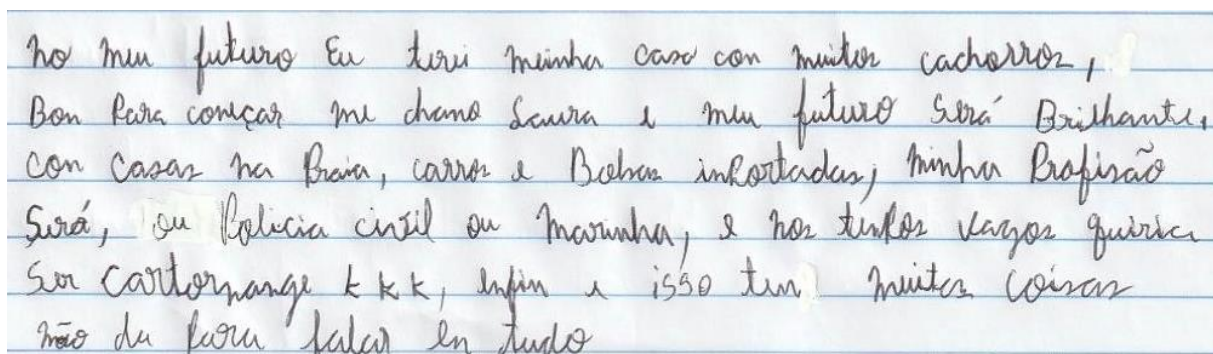 no meu futuro Eu terei meinha casa con muitos cachorros,
Bon Para começar me chamo Laura e meu futuro Será Brilhante,
con casas na Praia, carros e Bolsas inportadas, minha Profisão
Será, ou Policia civil ou marinha, e nos tenpos vagos quiria
Ser cartomange kkk, enfin e isso ten muitas coisas
não da para falar en tudo